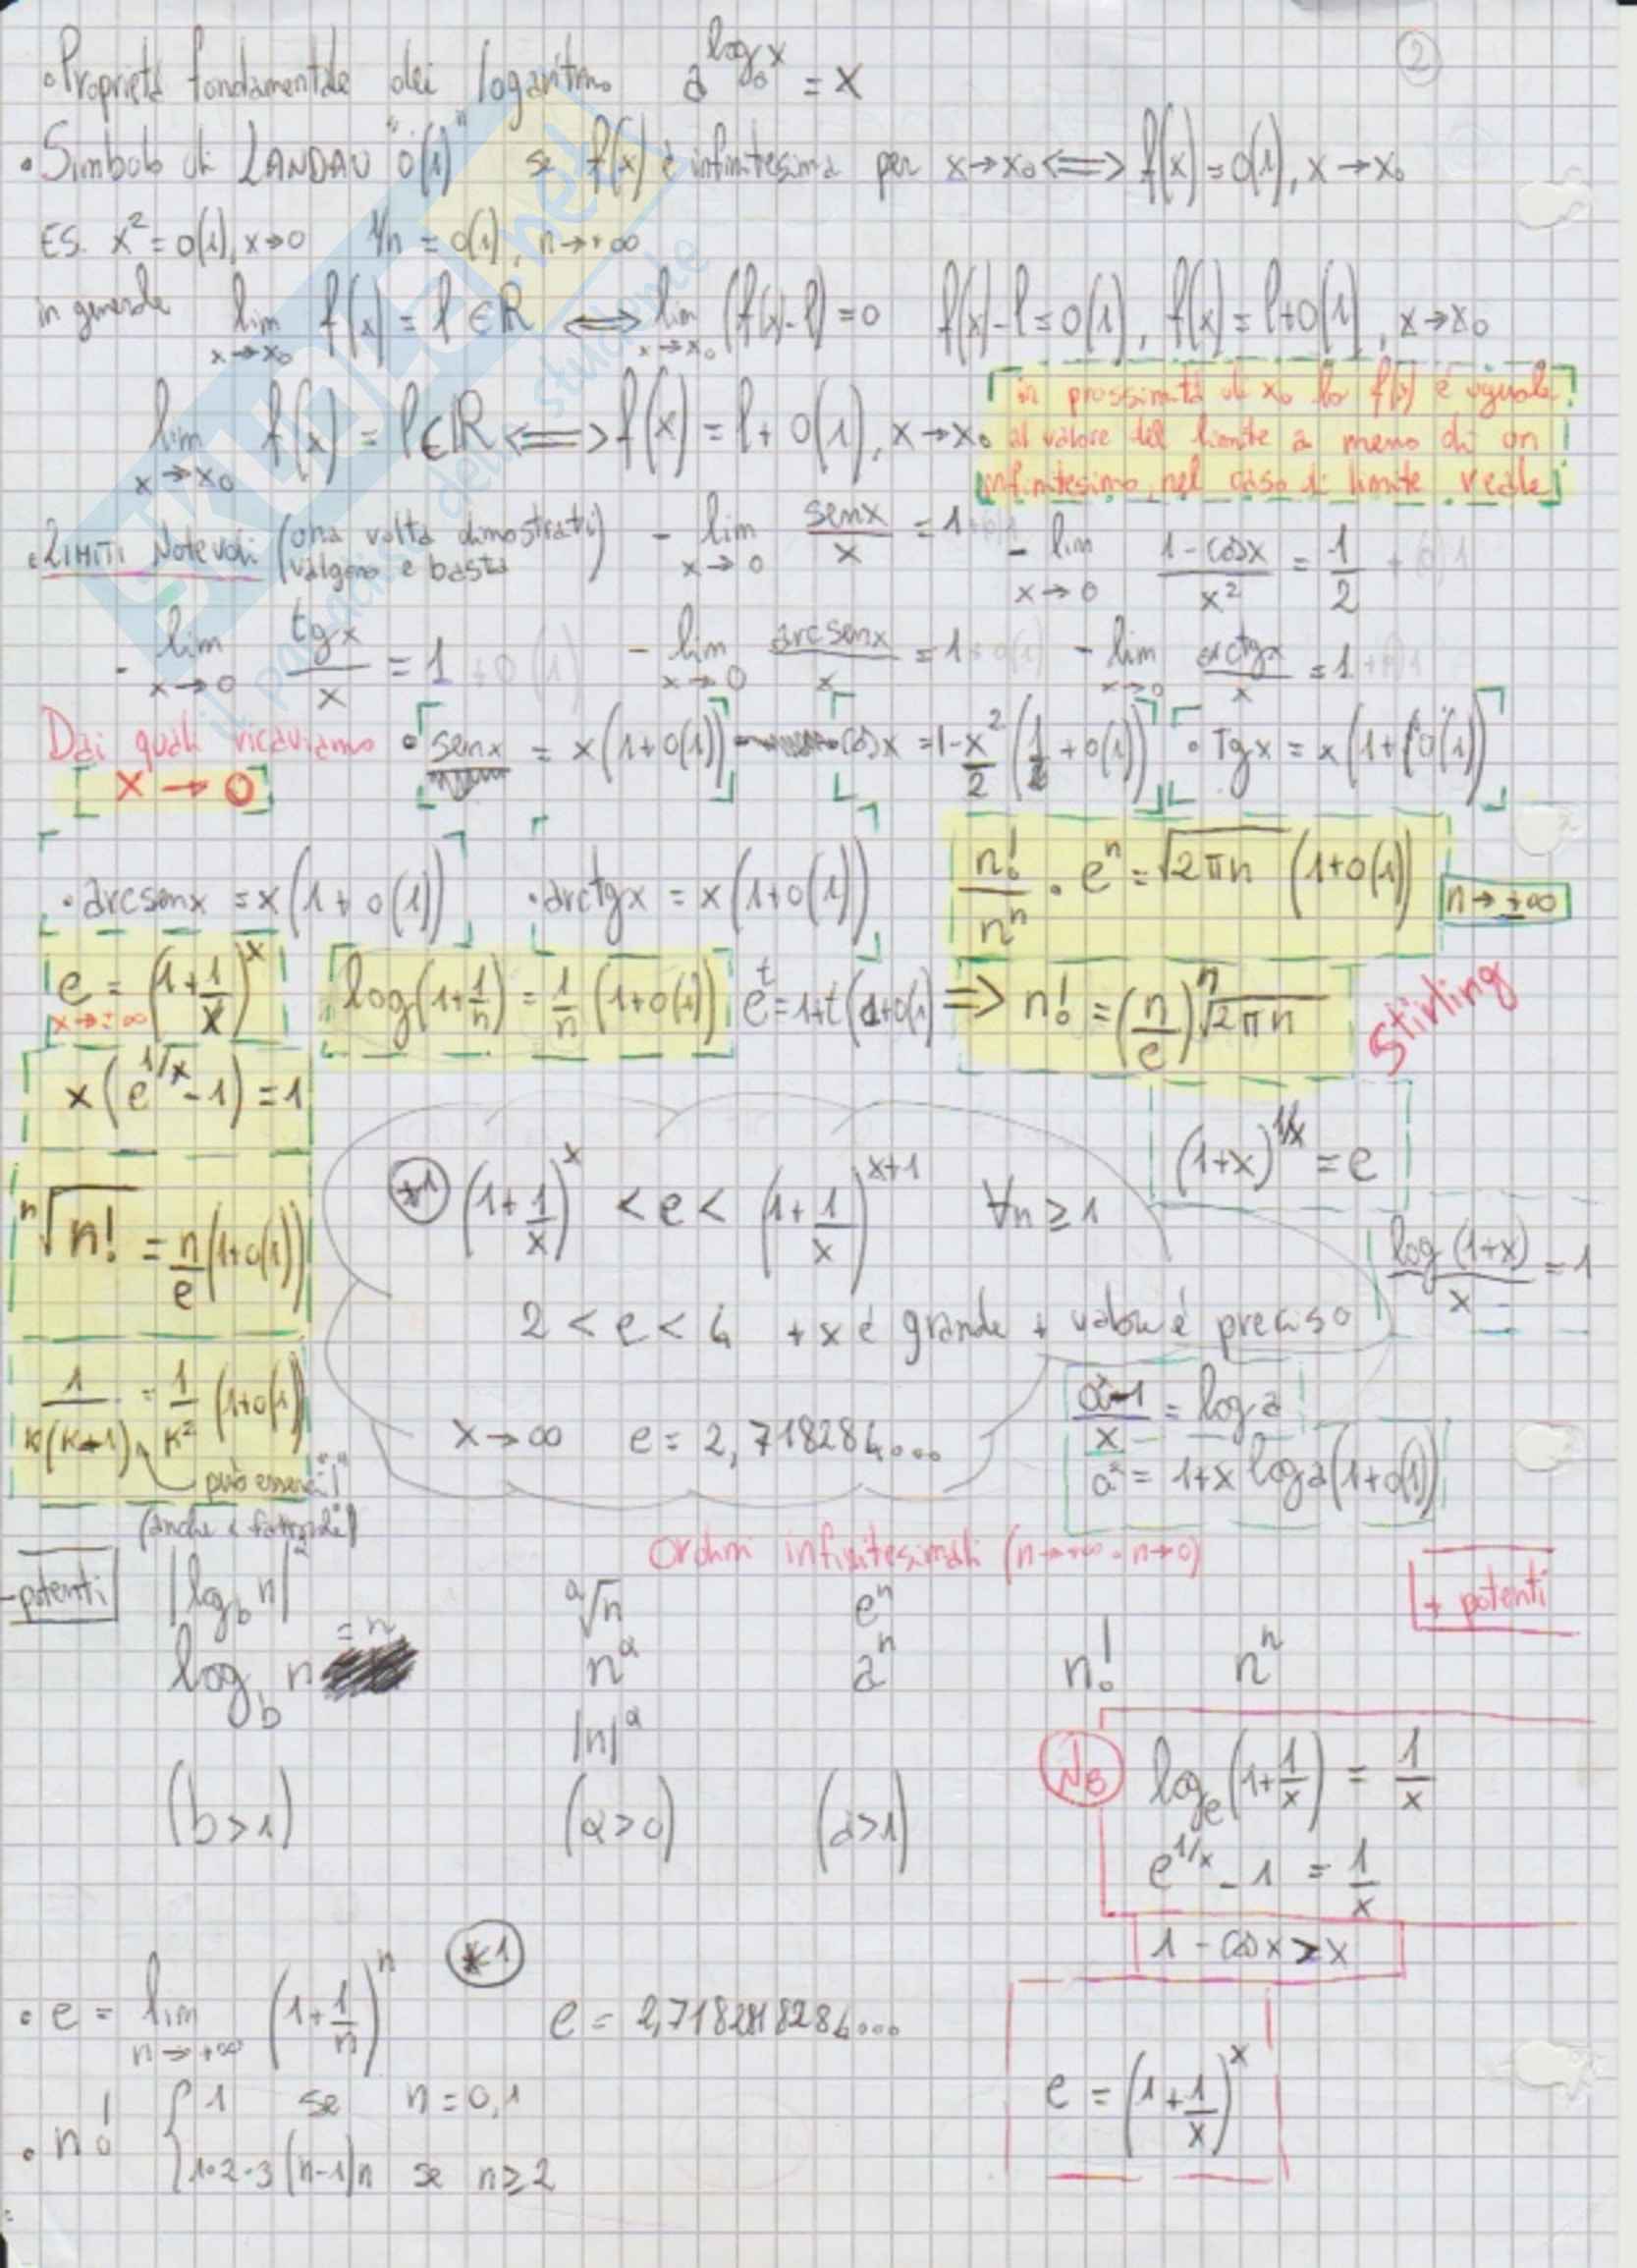 2
• Proprietà fondamentale dei logaritmo a^(log_a x) = x
• Simbolo di LANDAU "o(1)" se f(x) è infinitesima per x→x₀ <=> f(x) = o(1), x→x₀
ES. x² = o(1), x→0 1/n = o(1), n→+∞
in generale lim x→x₀ f(x) = l ∈ R <=> lim x→x₀ (f(x)-l) = 0 f(x)-l = o(1), f(x) = l+o(1), x→x₀
lim x→x₀ f(x) = l ∈ R <=> f(x) = l + o(1), x→x₀
in prossimità di x₀ la f(x) è uguale
al valore del limite a meno di un
infinitesimo, nel caso di limite reale
• LIMITI Notevoli (una volta dimostrati valgono e basta) - lim x→0 senx/x = 1 +o(1) - lim x→0 (1-cosx)/x² = 1/2 + o(1)
- lim x→0 tgx/x = 1 +o(1) - lim x→0 arcsenx/x = 1 +o(1) - lim x→0 arctgx/x = 1 +o(1)
Dai quali ricaviamo • senx = x(1+o(1)) cosx = 1-x²/2 (1/2 + o(1)) • Tgx = x(1+o(1))
x → 0
• arcsenx = x(1+o(1)) • arctgx = x(1+o(1)) n!/nⁿ • eⁿ = √(2πn) (1+o(1)) n→+∞
e = (1+1/x)^x x→±∞ log(1+1/n) = 1/n (1+o(1)) e^t = 1+t(1+o(1)) => n! = (n/e)ⁿ √(2πn) Stirling
x(e^(1/x) - 1) = 1
(1+x)^(1/x) = e
ⁿ√n! = n/e (1+o(1))
*1 (1+1/x)^x < e < (1+1/x)^(x+1) ∀n ≥ 1
log(1+x)/x = 1
2 < e < 4 + x è grande + valore è preciso
1/(K(K+1)) = 1/K² (1+o(1))
può essere "!"
(anche i fattoriali)
x→∞ e = 2,718284...
(aˣ-1)/x = log a
aˣ = 1+x log a (1+o(1))
Ordini infinitesimali (n→+∞ • n→0)
- potenti |log_b n|ᵃ ᵃ√n eⁿ + potenti
log_b n = n nᵃ aⁿ n! nⁿ
|n|ᵃ
(b>1) (a>0) (a>1)
NB log_e(1+1/x) = 1/x
e^(1/x) - 1 = 1/x
1 - cosx > x
*1
• e = lim n→+∞ (1+1/n)ⁿ e = 2,7182818284...
e = (1+1/x)^x
• n! { 1 se n = 0,1
1•2•3(n-1)n se n ≥ 2
SKUOLA.net
il paradiso dello studente